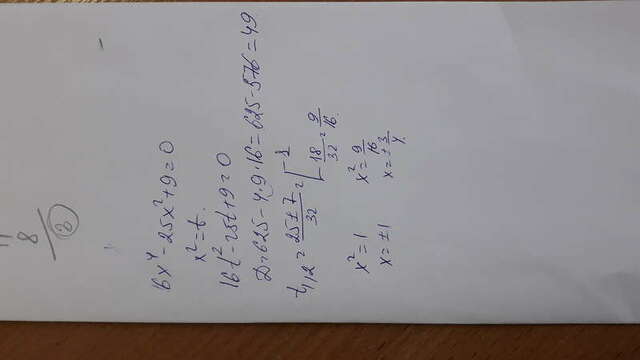 8
3
16x⁴-25x²+9=0
x²=t.
16t²-25t+9=0
D=625-4·9·16=625-576=49
t₁,₂=(25±7)/32=[1
18/32=9/16.
x²=1 x²=9/16
x=±1 x=±3/4.